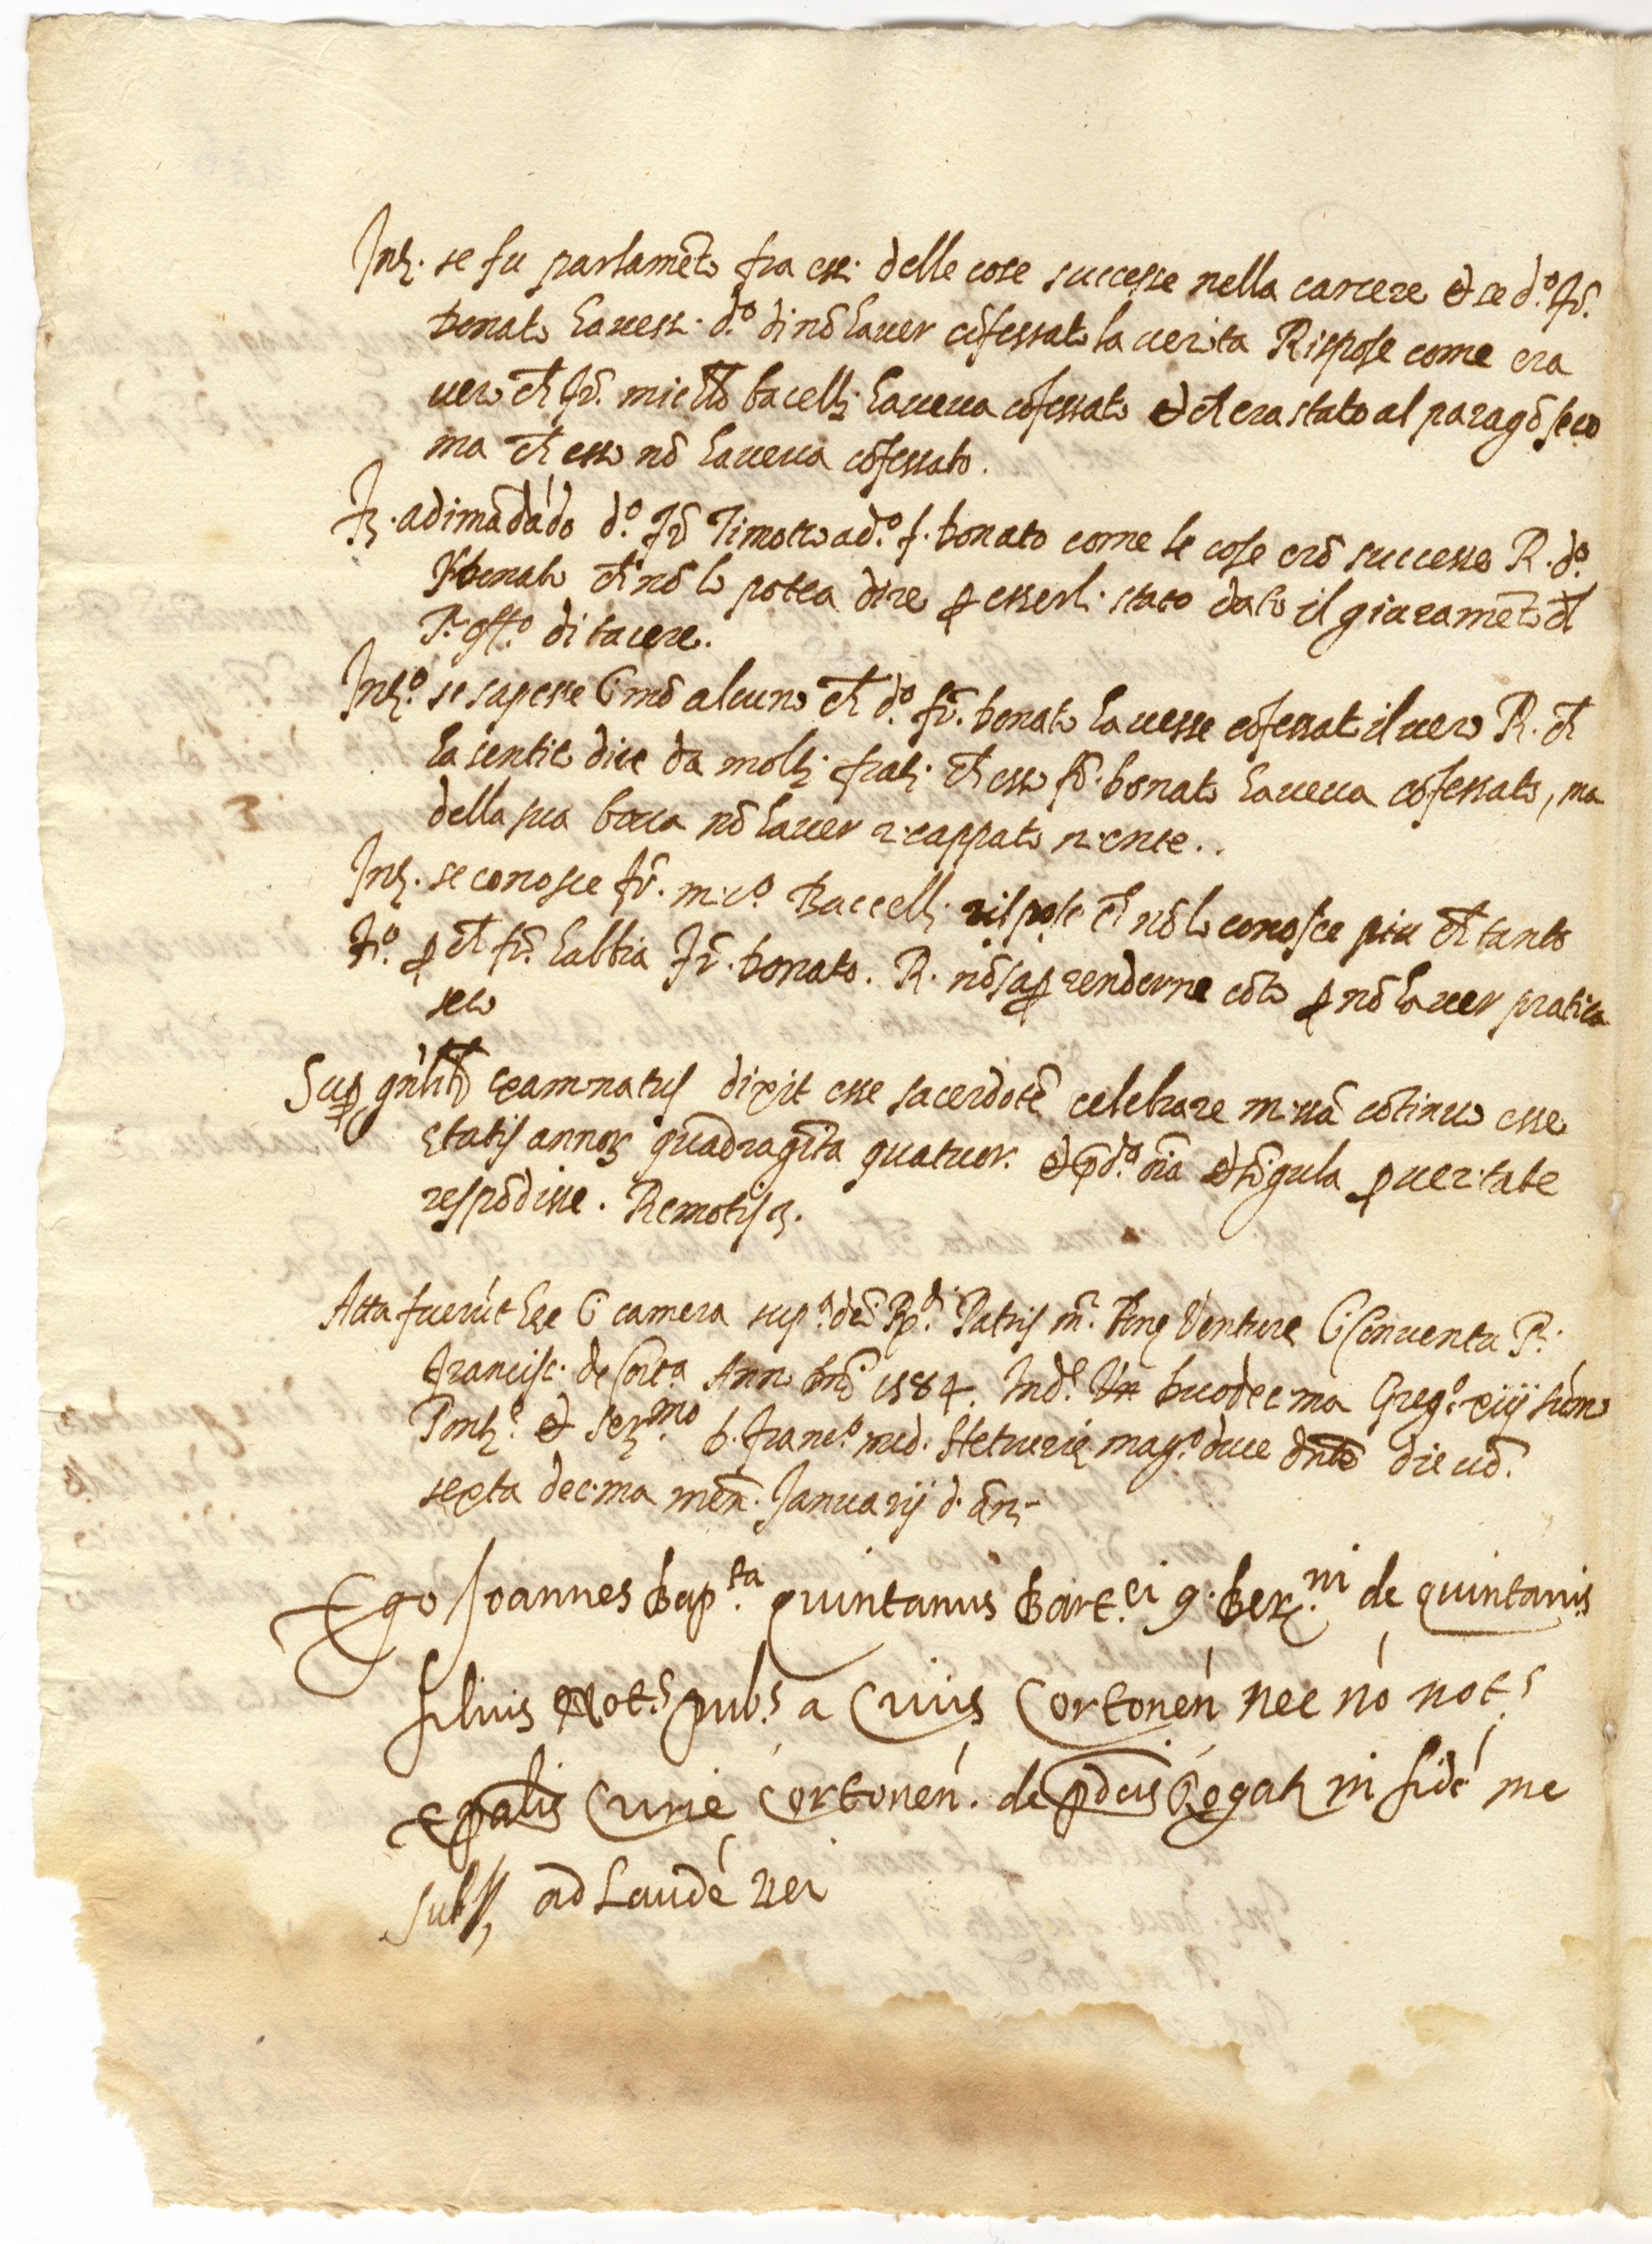 Intº. se fu parlamēto fra essi delle cose successe nella carcere et se d.º fr̄.
Donato havessi d.º di nō haver cōfessato la verita Rispose come era
vero ch̄ fr̄. bacelli haveva cōfessato et ch̄ era stato al paragō seco
ma ch̄ esso nō haveva cōfessato.
Iº. adimādādo d.º fr̄ Timoteo a d.º f. Donato come le cose erō successe R. d.º
f. Donato ch̄ nō lo potea dire ꝑ esserli stato dato il giuramēto dl̄
di tacere.
Intº. se sapesse ī mō alcuno ch̄ d.º fr̄. Donato havesse cōfessato il vero R. ch̄
ha sentito dire da molti frati ch̄ esso fr̄. Donato haveva cōfessato, ma
della sua bocca nō haver ricappato niente..
Intº. se conosce fr̄. mic.º Baccelli rispose ch̄ nō lo conosce piu ch̄ tanto
Iº. ꝑ ch̄ fr̄. habbia fr̄. Donato. R. nō sa ꝑ renderne cōto ꝑ nō haver pratica
seco
Suꝑ gn̄libus examinatus dixit esse sacerdotē celebrare missā cōtinuo esse
ętatis annoꝝ quadraginta quatuor. et p̄d.º oīa et sīgula ꝑ veritate
respōdisse. Remotis
Acta fuerūt hęc ī camera sup.ª dc̄i R.di Patris m.º Venturę ī Conventu
Francisci de Cort.ª Anno Dn̄i 1584. Ind.e Duodecima Greg.º xiij sūmo
Pont.e et Ser.mo D. Franc.º med. Hetrurię mag.º duce dn̄te die vō.
sexta decima mēn. Januarij d. ān.
Ego Joannes Bap.ta quintanus Bart.ei q. Ber.ni de quintanis
filius Not.s pub.s a Civis Cortonēn nec nō not.s
Epalis Curie Cortonēn. de p̄dcis rogat in fidē me
subss, ad Laudē Dei